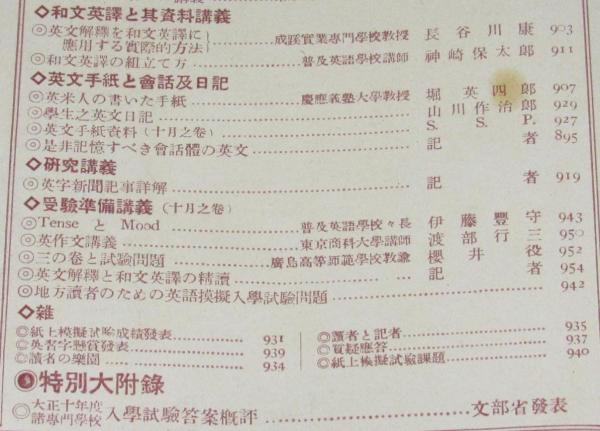 ◇和文英譯と其資料講義
◎英文解釋を和文英譯に應用する實際的方法}……成蹊實業專門學校教授 長谷川康 903
◎和文英譯の組立て方……普及英語學校講師 神崎保太郎 911
◇英文手紙と會話及日記
◎英米人の書いた手紙……慶應義塾大學教授 堀英四郎 907
◎學生之英文日記……山川作治郎 929
◎英文手紙資料(十月之卷)……S. S. P. 927
◎是非記憶すべき會話體の英文……記者 895
◇研究講義
◎英字新聞記事詳解……記者 919
◇受驗準備講義(十月之卷)
◎Tense と Mood……普及英語學校々長 伊藤豐守 943
◎英作文講義……東京商科大學講師 渡部行三 950
◎三の卷と試驗問題……廣島高等師範學校教諭 櫻井役 952
◎英文解釋と和文英譯の精讀……記者 954
◎地方讀者のための英語摸擬入學試驗問題……942
◇雜
◎紙上模擬試驗成績發表……931
◎英習字懸賞發表……939
◎讀者の樂園……934
◎讀者と記者……935
◎質疑應答……937
◎紙上模擬試驗課題……940
特別大附錄
◎大正十年度諸專門學校入學試驗答案概評……文部省發表